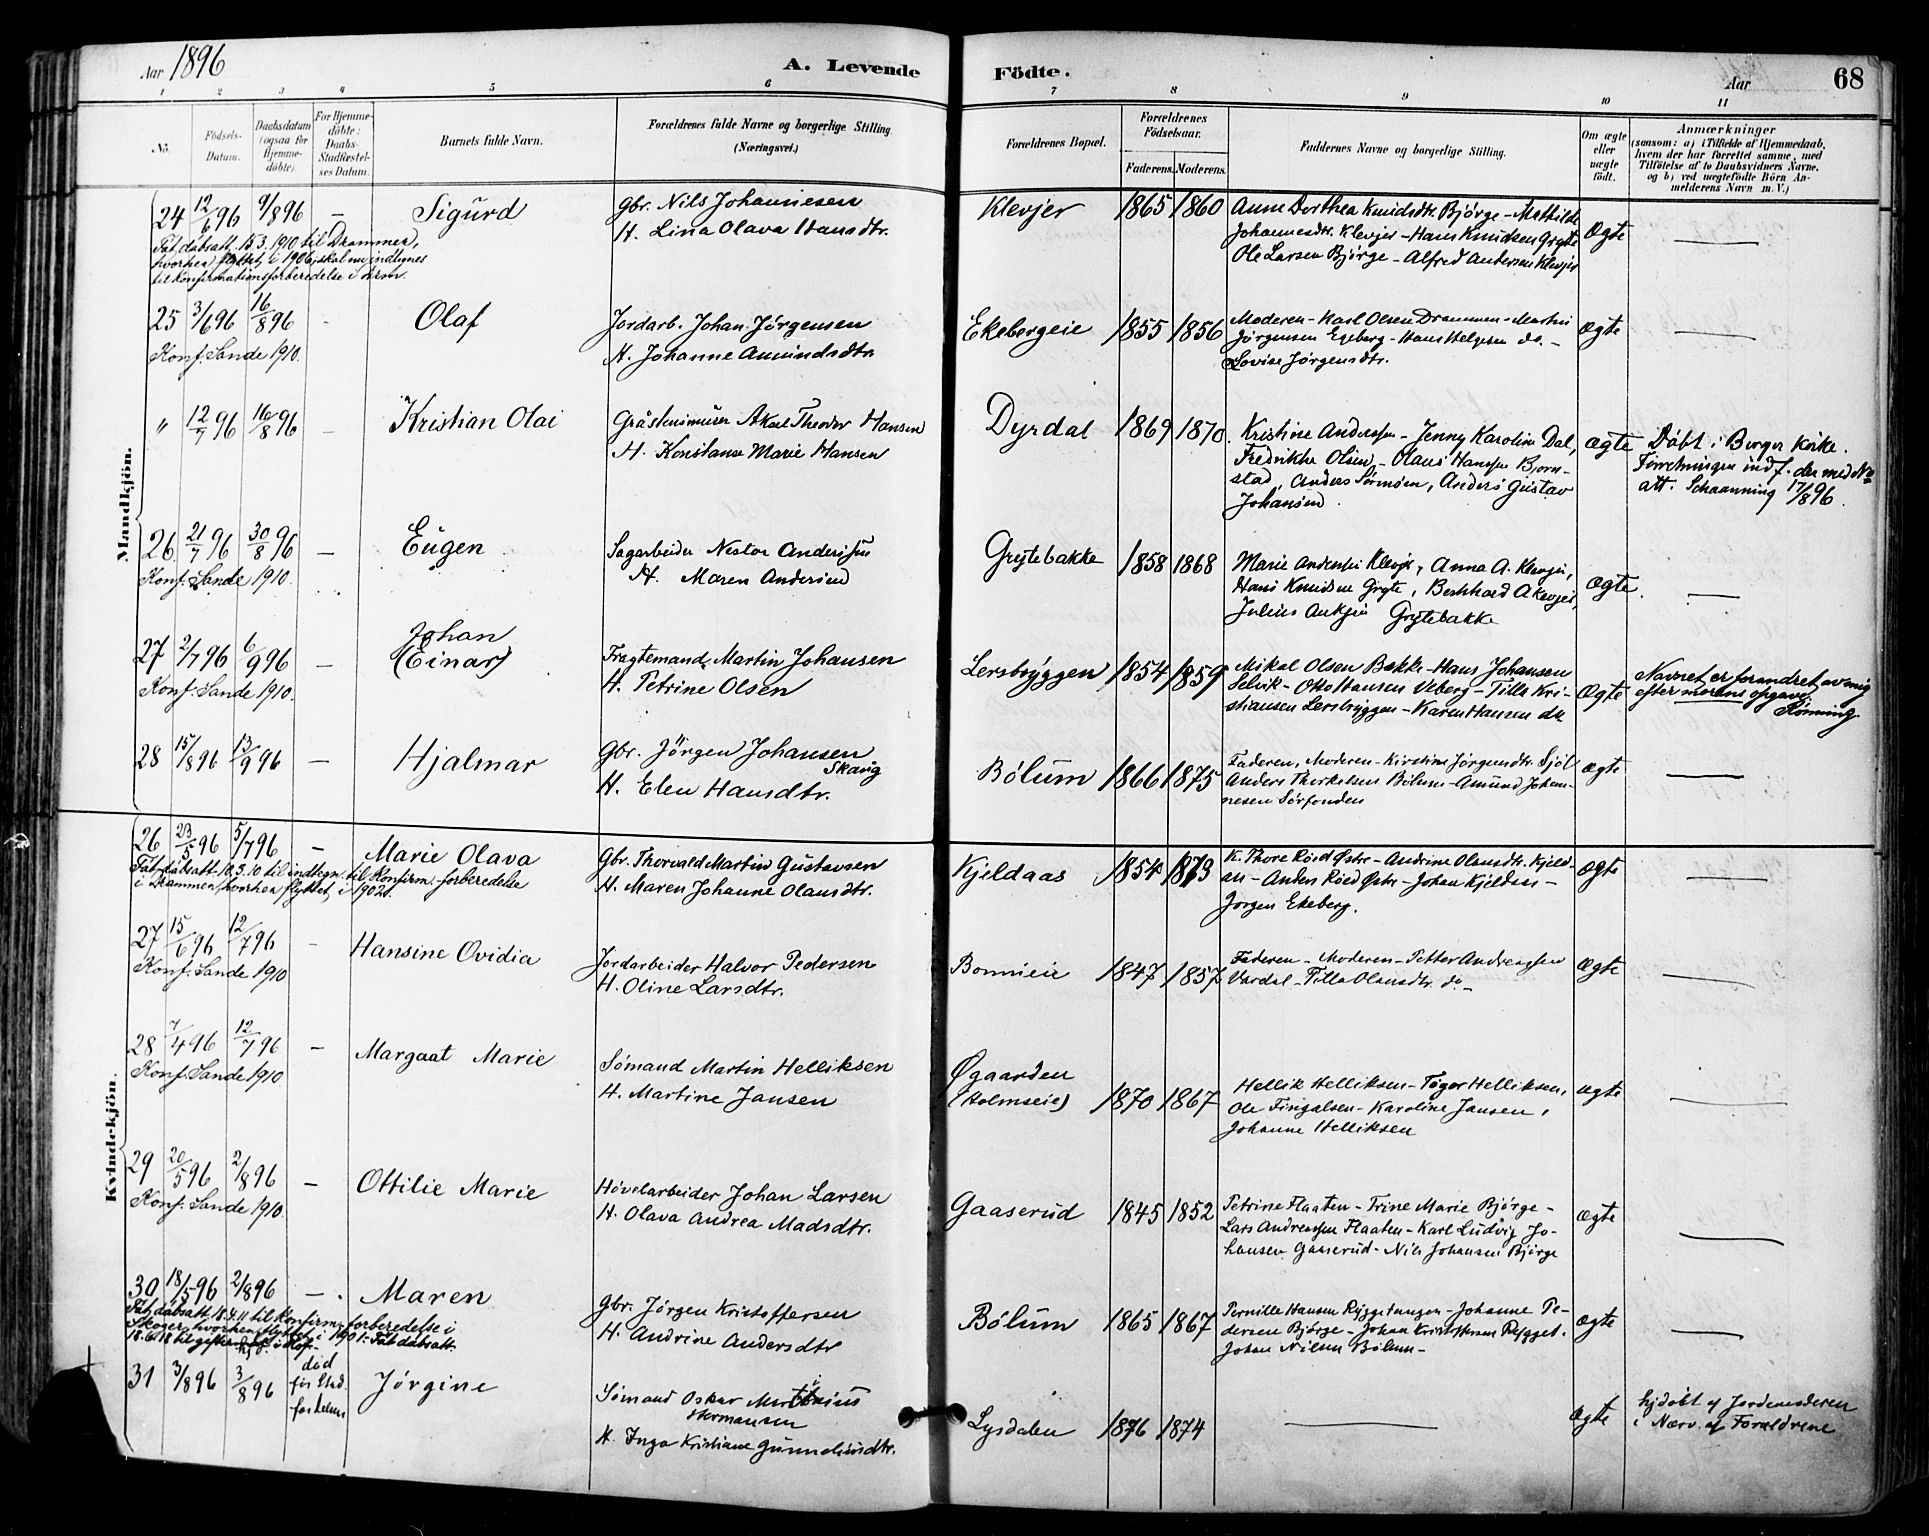 Aar 1896
A. Levende
Födte.
Aar
68
1 2 3 4 5 6 7 8 9 10 11
No.
Födsels-
Datum.
Daabsdatum
(ogsaa for
Hjemme-
döbte).
For Hjemme-
döbte:
Daabs-
Stadfæstel-
ses Datum.
Barnets fulde Navn.
Forældrenes fulde Navne og borgerlige Stilling.
(Næringsvei.)
Forældrenes Bopæl.
Forældrenes
Födselsaar.
Faderens. Moderens.
Faddernes Navne og borgerlige Stilling.
Om ægte
eller
uægte
födt.
Anmærkninger
(saasom: a) i Tilfælde af Hjemmedaab,
hvem der har forrettet samme, med
Tilföielse af to Daabsvidners Navne,
og b) ved uægtefödte Börn An-
melderens Navn m. V.)
Mandkjön.
24 12/6 96 9/8 96 – Sigurd
Gbr. Nils Johannesen
H. Lina Olava Hansdtr.
Klevjer 1865 1860
Anne Dorthea Knudsdtr. Bjørge – Mathilde
Johannesdtr. Klevjer – Hans Knudsen Gryte
Ole Larsen Bjørge – Alfred Andersen Klevjer
Ægte
Fåt dåbsatt. 15.3.1910 til Drammen,
hvorhen flyttet i 1906, skal nu indtegnes
til konfirmationsforberedelse i Drm.
25 3/6 96 16/8 96 - Olaf
Jordarb. Johan Jørgensen
H. Johanne Amundsdtr.
Ekebergeie 1855 1856
Moderen – Karl Olsen Drammen – Martin
Jørgensen Egeberg – Hans Helgesen do. –
Lovise Jørgensdtr.
Ægte
Konf. Sande 1910.
" 12/7 96 16/8 96 – Kristian Olai
Gråstensmurer Aksel Theodor Hansen
H. Konstanse Marie Hansen
Dyrdal 1869 1870.
Kristine Anderssen – Jenny Karoline Dal,
Fredrikke Olsen – Olaus Hanssen Bjørn-
stad, Anders Sørmoen, Anders Gustav
Johansen.
ægte
Döbt i Berger Kirke.
Forretningen indf. der med No
att. Schanning 17/8 96.
26 21/7 96 30/8 96 – Eugen
Sagarbeider Nestor Anderssen
H. Maren Andersen
Grytebakke 1858 1868
Marie Andersen Klevjer, Anna A. Klevjer,
Hans Knudsen Gryte, Bernhard A Klevjer,
Julius Grytebakke
Ægte.
Konf. Sande 1910.
27 2/7 96 6/9 96 – Johan
(Einar)
Fragtemand Martin Johansen
H. Petrine Olsen
Lersbryggen 1854 1859
Mikal Olsen Bakke – Hans Johansen
Selvik – Otto Hansen Veberg – Tilla Kri-
stiansen Lersbryggen – Karen Hansen do
Ægte
Navnet er forandret av mig
efter morens opgave.
Rønning
Konf. Sande 1910.
28 15/8 96 13/9 96 – Hjalmar
Gbr. Jörgen Johansen
Skaug
H. Elen Hansdtr.
Bölum 1866 1875
Faderen, Moderen – Kirstine Jørgensdtr. Sjøl
Anders Thorkelsen Bölum – Amund Johan-
nesen Sørfonden
Ægte
Kvindekjön.
26 23/5 96 5/7 96 – Marie Olava
Gbr. Thorvald Martin Gustavsen
H. Maren Johanne Olausdtr.
Kjeldaas 1854 1873
K. Thore Röed Østre – Andrine Olausdtr. Kjeld-
aas – Anders Röed Østre – Johan Kjeldaas –
Jørgen Ekeberg.
Ægte
Fåt dåbsatt. 10.3.10 til indtegn. til Konfirm.-forberedelse
i Drammen, hvorhen flyttet i 1902.
27 15/6 96 12/7 96 – Hansine Ovidia
Jordarbeider Halvor Pedersen
H. Oline Larsdtr.
Bonnieie 1847 1857
Faderen – Moderen – Petter Andreassen
Vardal – Tilla Olausdtr. do –
Ægte
Konf. Sande 1910
28 7/4 96 12/7 96 – Margaat Marie
Sømand Martin Helliksen
H. Martine Jansen
Øgaarden
(Holmseie) 1870 1867
Hellik Helliksen – Tøger Helliksen,
Ole Fingalsen – Karoline Jansen,
Johanne Helliksen
ægte
Konf. Sande 1910
29 20/5 96 2/8 96 – Ottilie Marie
Høvelarbeider Johan Larsen
H. Olava Andrea Madsdtr.
Gaaserud 1845 1852
Petrine Flaaten – Trine Marie Bjørge –
Lars Andreassen Flaaten – Karl Ludvig Jo-
hansen Gaaserud – Nils Johansen Bjørge
ægte
Konf. Sande 1910.
30 18/5 96 2/8 96 – . Maren
Gbr. Jörgen Kristoffersen
H. Andrine Andersdtr
Bölum 1865 1867
Pernille Hansen Ryggetangen – Johanne Pe-
dersen Bjørge – Johan Kristoffersen Rygget.
Johan Nilsen Bölum –
ægte
Fåt dåbsatt. 18.4.11 til konfirm.-forberedelse i
Skoger, hvorhen flyttet i 1901. Fåt dåbsatt.
31 3/8 96 3/8 96 död
før Stad-
fæstelsen
Jørgine
Sømand Oskar Martinius
Hermansen
H. Inga Kristiane Gunnelsusdtr.
Lysdalen 1876 1874
Ægte
hjdøbt af Jordemoderen
i Nærv. af Forældrene